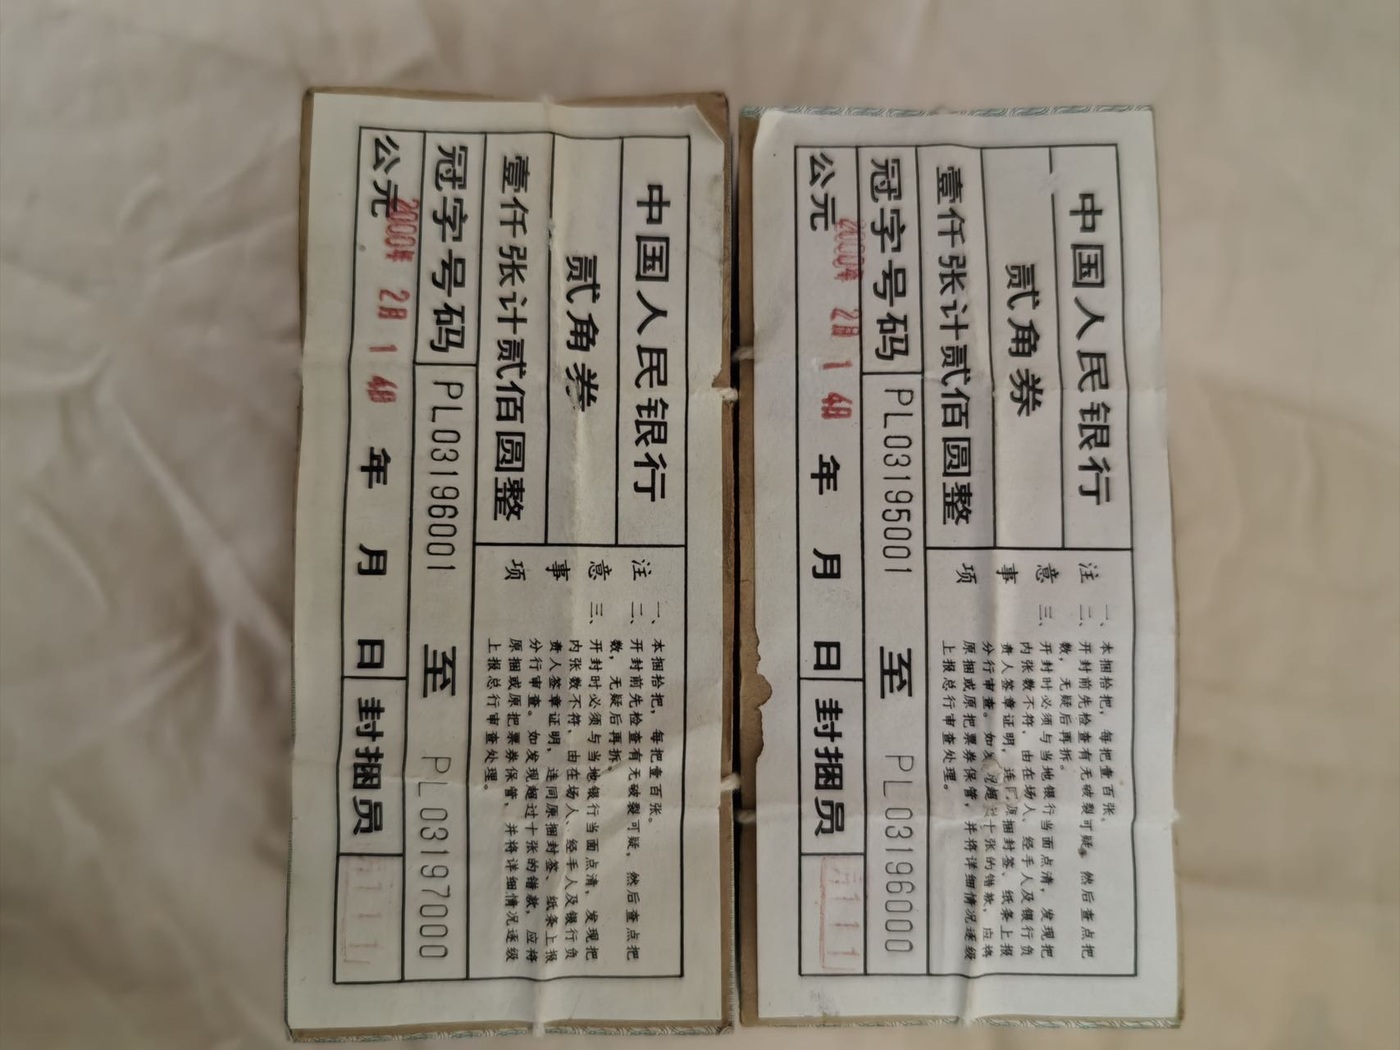 中国人民银行
贰角券
壹仟张计贰佰圆整
冠字号码 PL0319600l 至 PL03197000
公元 2000年 2月 1 4日 年 月 日 封捆员 111
注意事项
一、本捆拾把，每把壹百张。
二、开封前先检查有无破裂可疑，然后查点把
数，无疑后再拆。
三、开封时必须与当地银行当面点清，发现把
内张数不符，由在场人、经手人及银行负
责人签章证明，连同原捆封签、纸条上报
分行审查。如发现超过十张的错款，应将
原捆或原把票券保管，并将详细情况逐级
上报总行审查处理。
中国人民银行
贰角券
壹仟张计贰佰圆整
冠字号码 PL03195001 至 PL03196000
公元 2000年 2月 1 4日 年 月 日 封捆员 111
注意事项
一、本捆拾把，每把壹百张。
二、开封前先检查有无破裂可疑，然后查点把
数，无疑后再拆。
三、开封时必须与当地银行当面点清，发现把
内张数不符，由在场人、经手人及银行负
责人签章证明，连同原捆封签、纸条上报
分行审查。如发现超过十张的错款，应将
原捆或原把票券保管，并将详细情况逐级
上报总行审查处理。